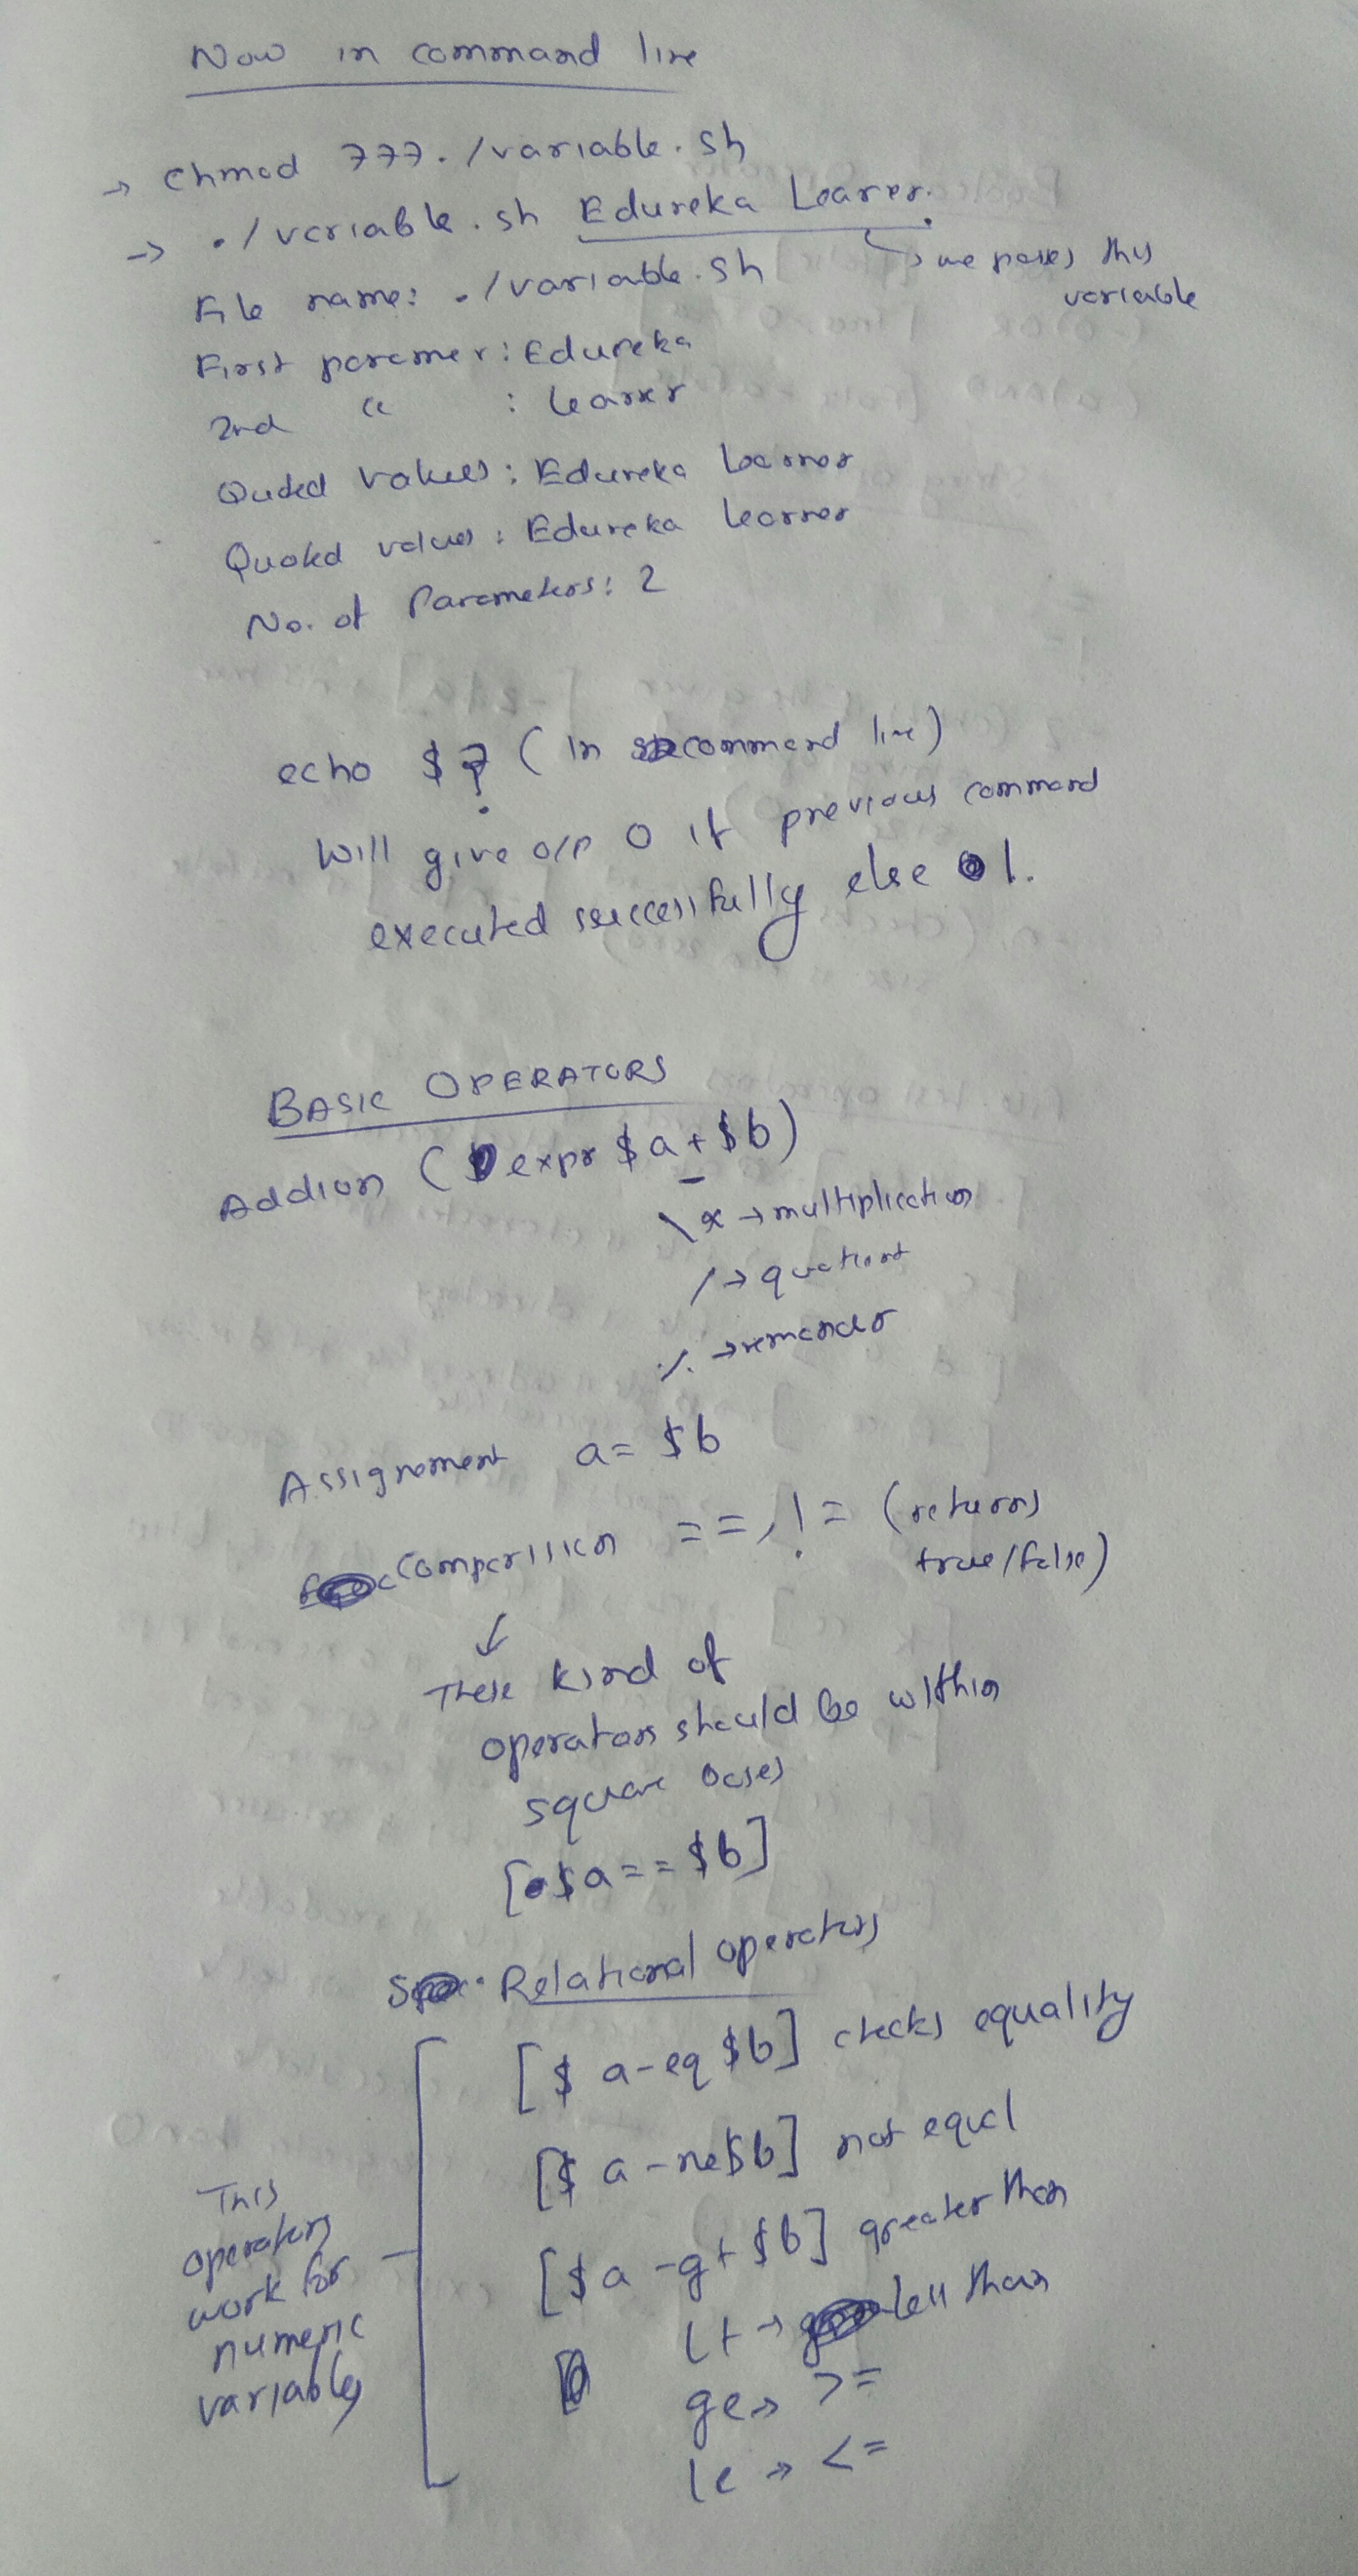 Now in command line
→ chmod 777 ./variable.sh
→ ./variable.sh Edureka Learner.
↳ we passes this
variable
File name: ./variable.sh
First paramer: Edureka
2nd " : learner
Quded values: Edureka Learner
Quoted values: Edureka learner
No. of Parameters: 2
echo $? (In command line)
Will give o/p 0 if previous command
executed successfully else 1.
BASIC OPERATORS
Addion (expr $a + $b)
-
\* → multiplication
/ → quotient
% → remainder
Assignement a = $b
Comparision ==, != (returns
true/false)
↓
These kind of
operators should be within
square
[$a == $b]
Relational operators
[$ a -eq $b] checks equality
[$ a -ne $b] not equal
[$a -gt $b] greater than
lt → less than
ge → >=
le → <=
This
operators
work for
numeric
variables